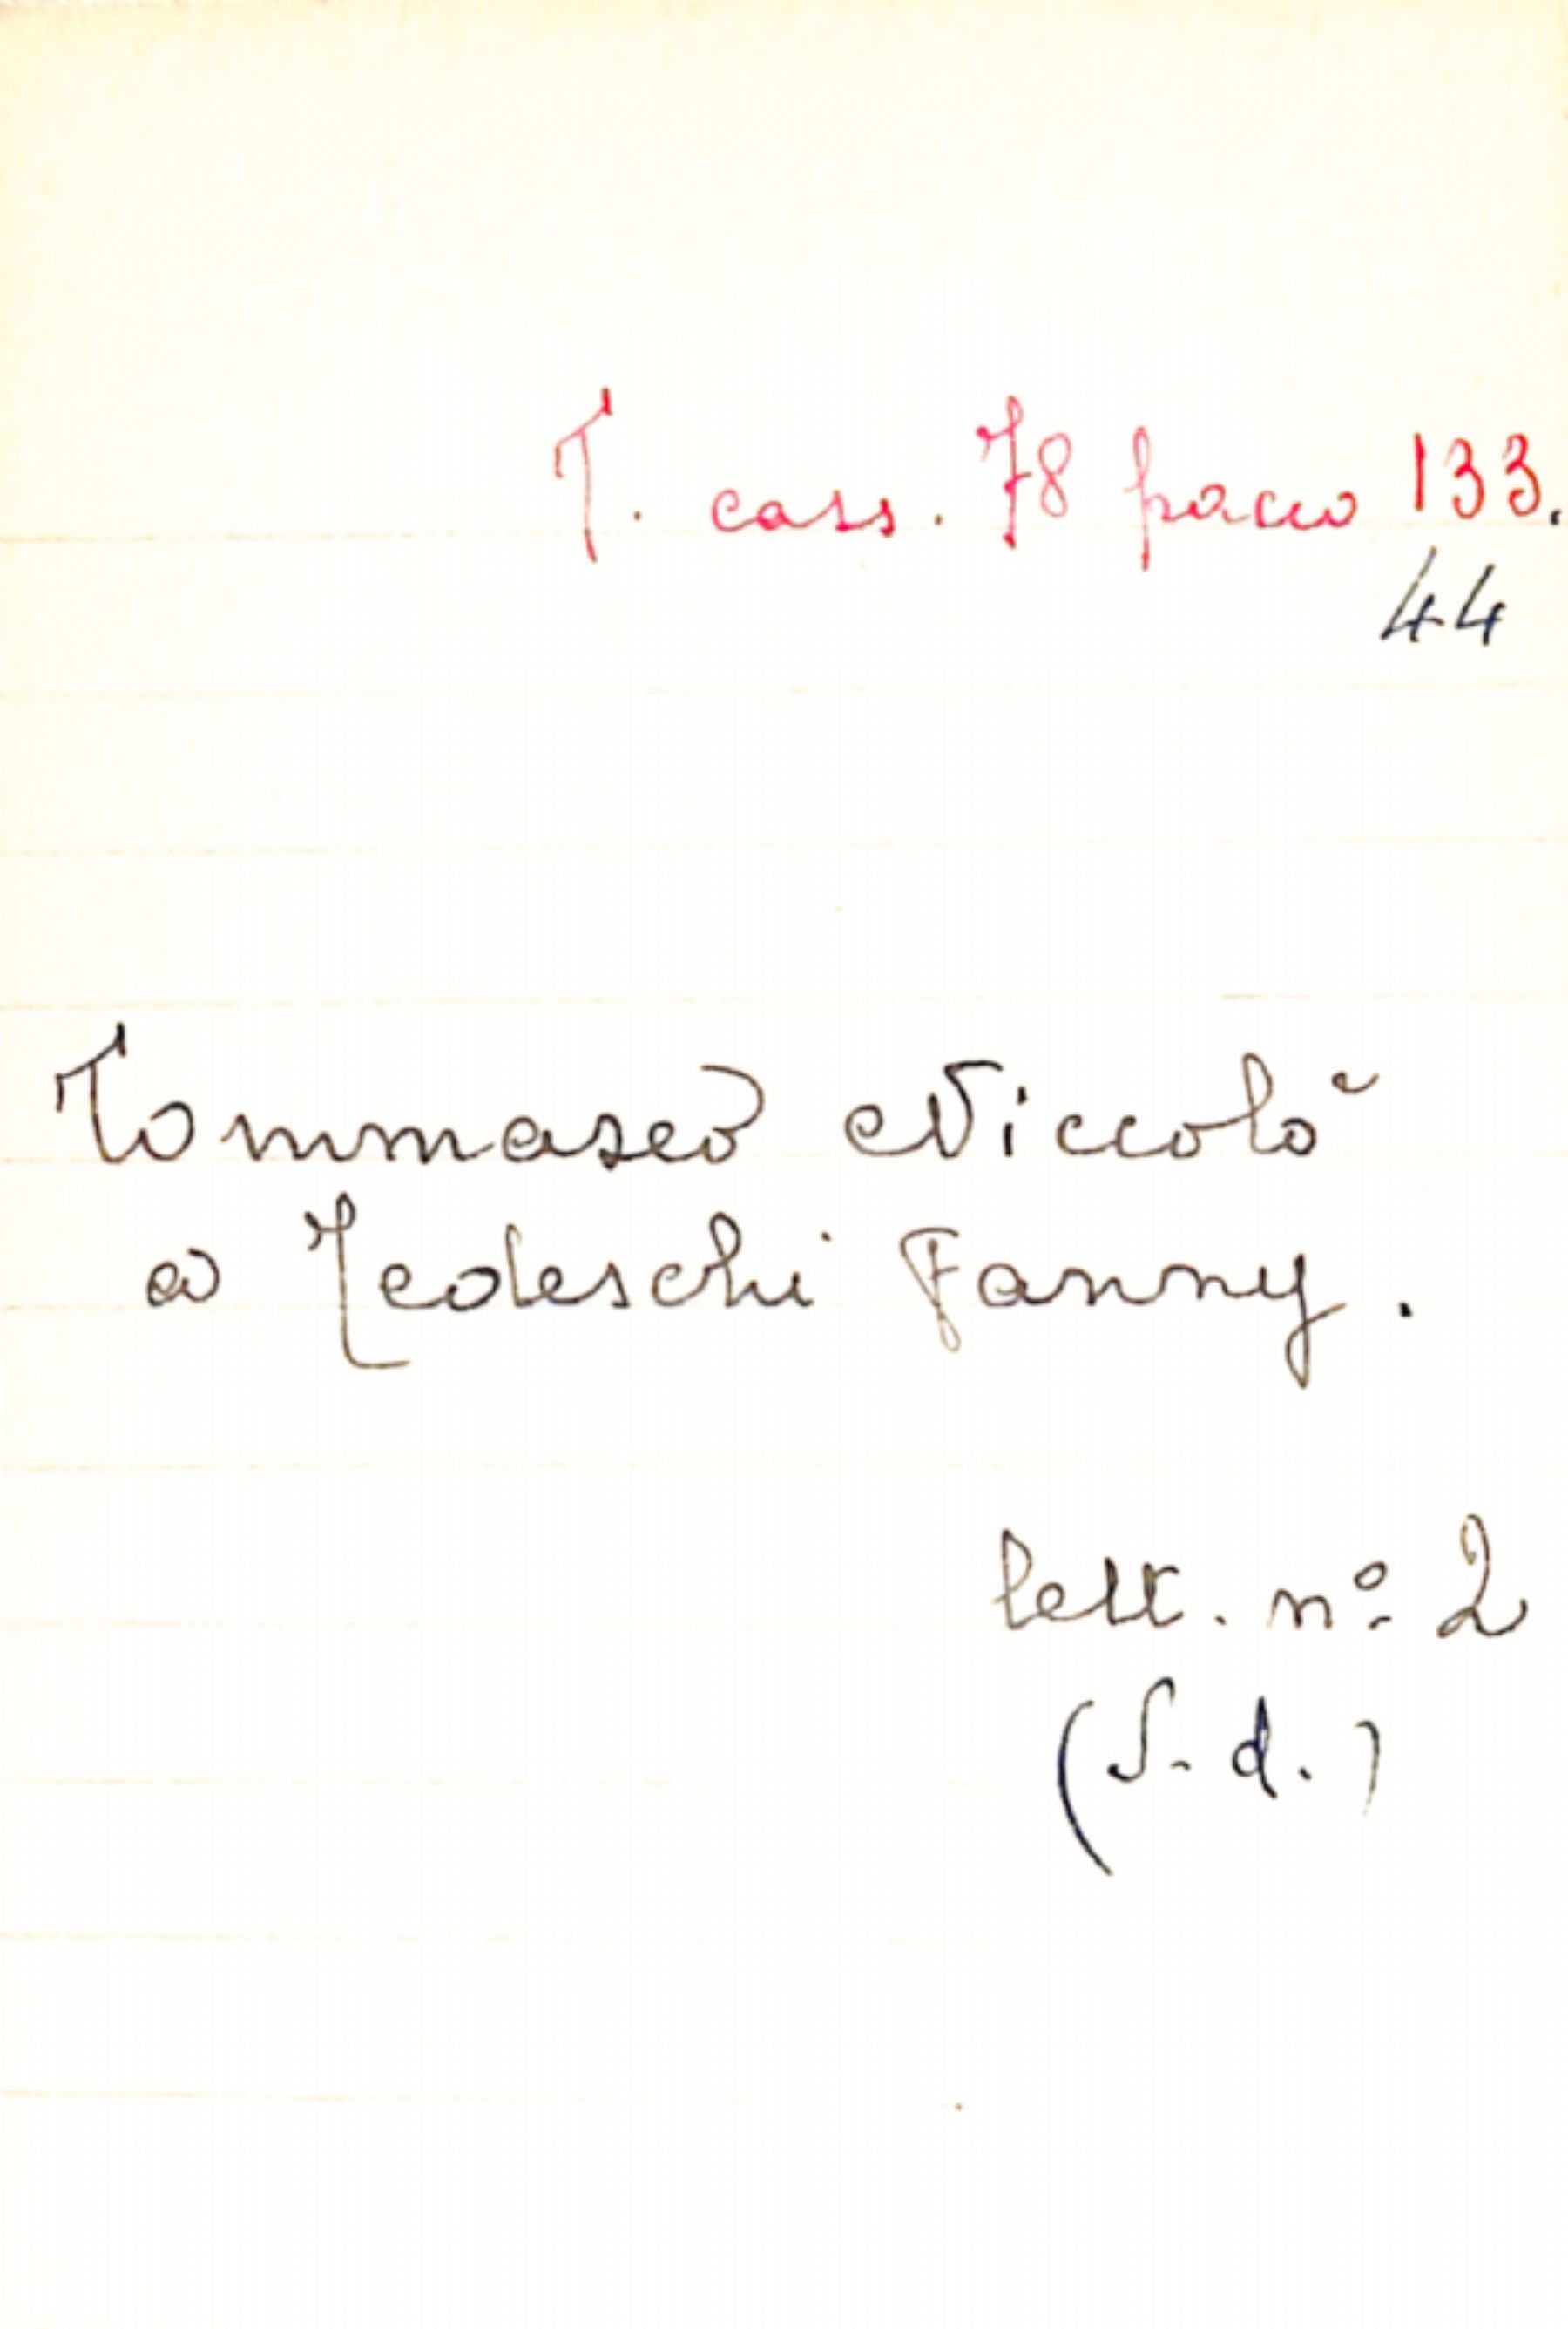 T. cass. 78 pacco 133.
44
Tommaseo Niccolò
a Tedeschi Fanny.
lett. nº 2
(S. d.)